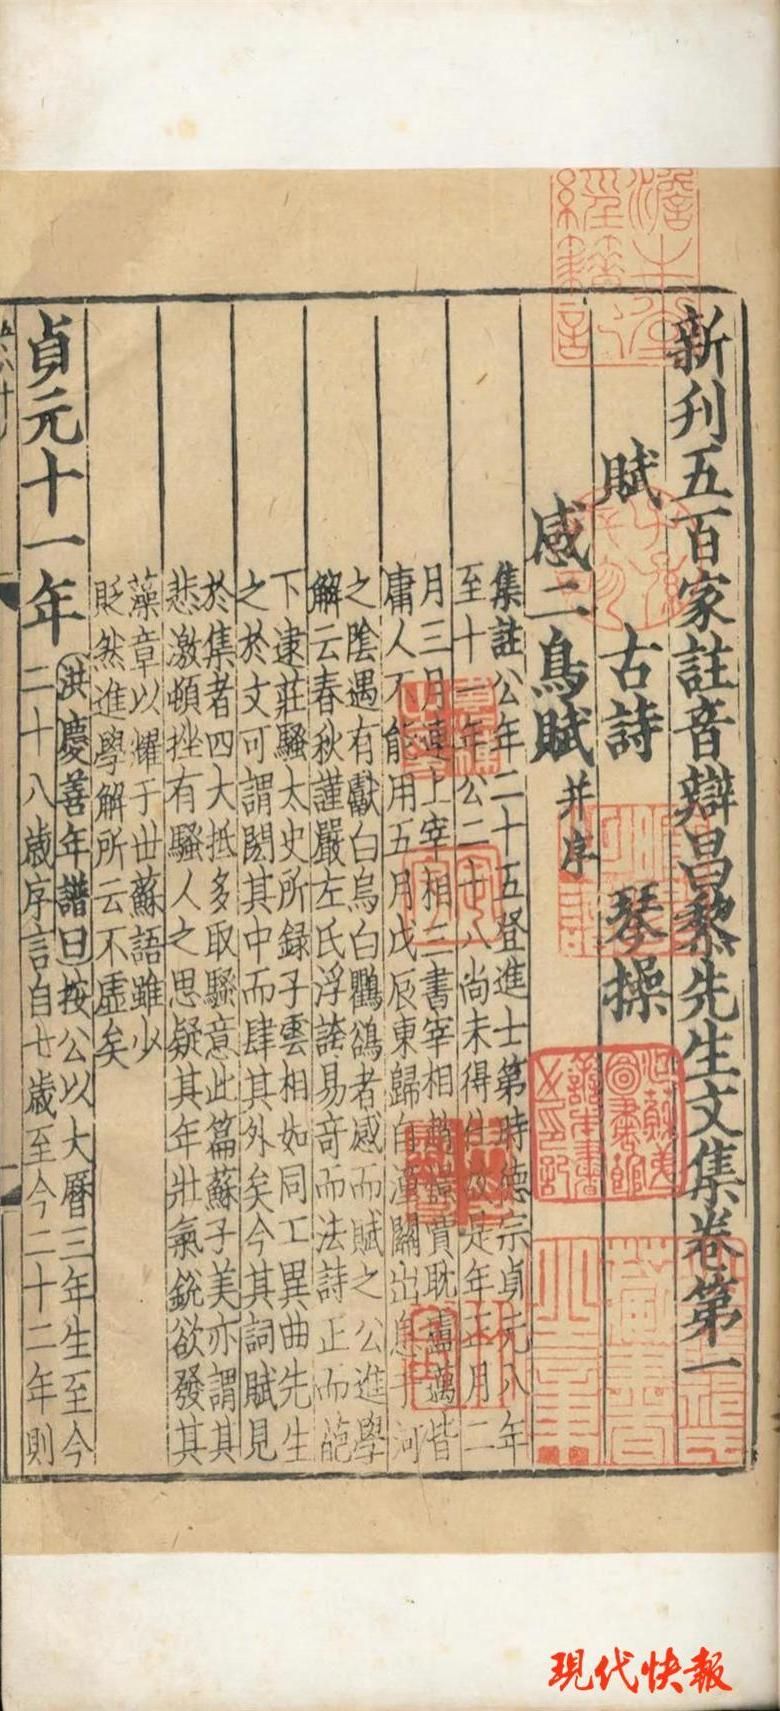 新刊五百家註音辯昌黎先生文集卷第一
賦 古詩 琴操
感二鳥賦 并序
集註公年二十五登進士第時德宗貞元八年
至十一年公二十八尚未得仕故是年正月二
月三月連上宰相三書宰相趙憬賈耽盧邁皆
庸人不能用五月戊辰東歸自潼關出息于河
之陰遇有獻白烏白鸜鵒者感而賦之公進學
解云春秋謹嚴左氏浮誇易奇而法詩正而葩
下逮莊騷太史所録子雲相如同工異曲先生
之於文可謂閎其中而肆其外矣今其詞賦見
於集者四大抵多取騷意此篇蘇子美亦謂其
悲激頓挫有騷人之思疑其年壯氣銳欲發其
藻章以耀于世蘇語雖少
貶然進學解所云不虛矣
貞元十一年
洪慶善年譜曰按公以大曆三年生至今
二十八歲序言自七歲至今二十二年則
江蘇第一圖書館
善本書
之印記
現代快報